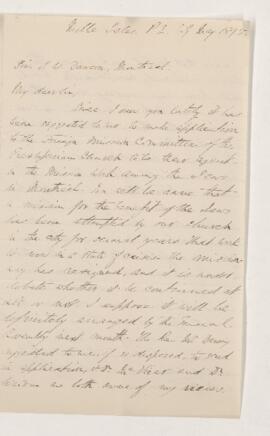 Mille Isles. P.Q. 29 May 1895.
Sir J. W. Dawson, Montreal.
My dear Sir,
Since I saw you lately it has
been suggested to me to make application
to the Foreign Mission Committee of the
Presbyterian Church to be their agent
in the Mission work among the Jews
in Montreal. You will be aware that
a mission for the benefit of the Jews
has been attempted by our church
in the city for several years. That work
is now in a state of crisis the mission-
ary has resigned, and it is under
debate whether it be continued at
all or not. I suppose it will be
definitely arranged by the General
Assembly next month. The Rev. Mr.
suggested to me, if so disposed, to send
in application, & Dr. and Dr.
as both aware of my views.